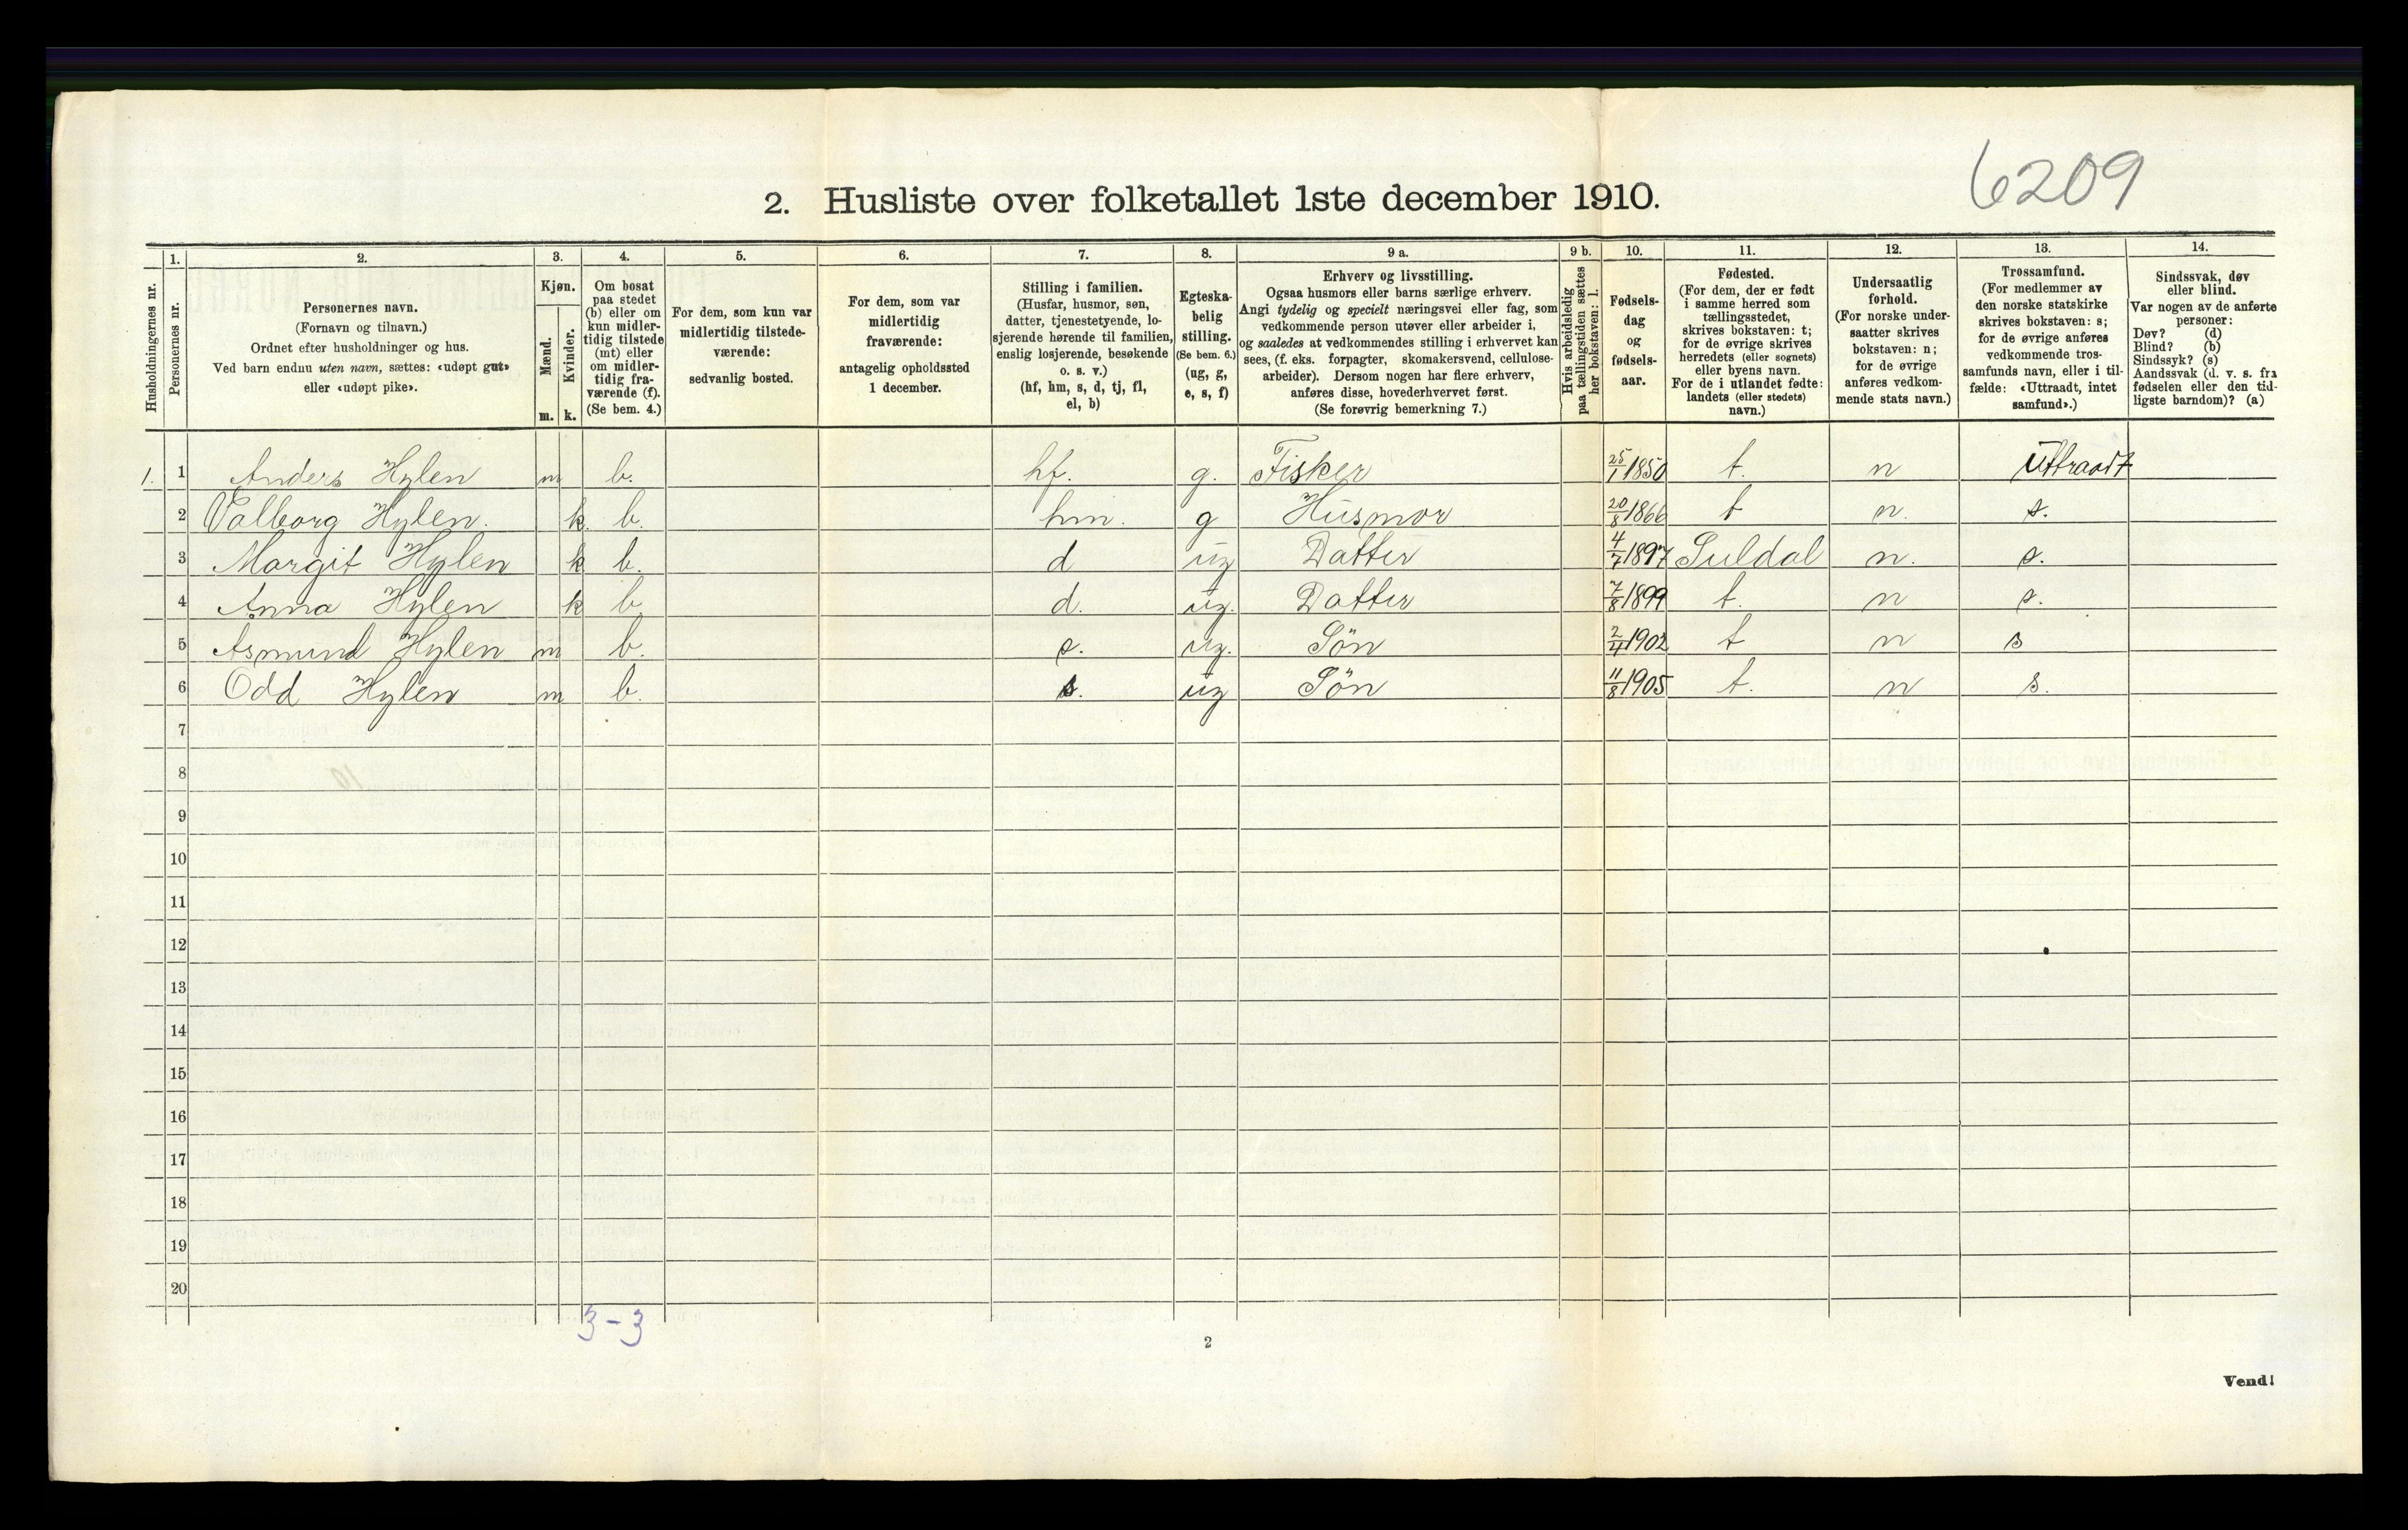 6209
2. Husliste over folketallet 1ste december 1910.
Husholdningernes nr.
1.
Personernes nr.
2.
Personernes navn.
(Fornavn og tilnavn.)
Ordnet efter husholdninger og hus.
Ved barn endnu uten navn, sættes: «udøpt gut»
eller «udøpt pike».
3.
Kjøn.
Mænd.
m.
Kvinder.
k.
4.
Om bosat
paa stedet
(b) eller om
kun midler-
tidig tilstede
(mt) eller
om midler-
tidig fra-
værende (f).
(Se bem. 4.)
5.
For dem, som kun var
midlertidig tilstede-
værende:
sedvanlig bosted.
6.
For dem, som var
midlertidig
fraværende:
antagelig opholdssted
1 december.
7.
Stilling i familien.
(Husfar, husmor, søn,
datter, tjenestetyende, lo-
sjerende hørende til familien,
enslig losjerende, besøkende
o. s. v.)
(hf, hm, s, d, tj, fl,
el, b)
8.
Egteska-
belig
stilling.
(Se bem. 6.)
(ug, g,
e, s, f)
9 a.
Erhverv og livsstilling.
Ogsaa husmors eller barns særlige erhverv.
Angi tydelig og specielt næringsvei eller fag, som
vedkommende person utøver eller arbeider i,
og saaledes at vedkommendes stilling i erhvervet kan
sees, (f. eks. forpagter, skomakersvend, cellulose-
arbeider). Dersom nogen har flere erhverv,
anføres disse, hovederhvervet først.
(Se forøvrig bemerkning 7.)
9 b.
Hvis arbeidsledig
paa tællingstiden sættes
her bokstaven: l.
10.
Fødsels-
dag
og
fødsels-
aar.
11.
Fødested.
(For dem, der er født
i samme herred som
tællingsstedet,
skrives bokstaven: t;
for de øvrige skrives
herredets (eller sognets)
eller byens navn.
For de i utlandet fødte:
landets (eller stedets)
navn.)
12.
Undersaatlig
forhold.
(For norske under-
saatter skrives
bokstaven: n;
for de øvrige
anføres vedkom-
mende stats navn.)
13.
Trossamfund.
(For medlemmer av
den norske statskirke
skrives bokstaven: s;
for de øvrige anføres
vedkommende tros-
samfunds navn, eller i til-
fælde: «Uttraadt, intet
samfund».)
14.
Sindssvak, døv
eller blind.
Var nogen av de anførte
personer:
Døv? (d)
Blind? (b)
Sindssyk? (s)
Aandssvak (d. v. s. fra
fødselen eller den tid-
ligste barndom)? (a)
1. 1 Anders Hylen m b. hf. g. Fisker 25/1 1850 t. n Uttraadt
2 Valborg Hylen. k. b. hm. g Husmor 20/8 1866 t n. s.
3 Margit Hylen k b. d ug Datter 4/7 1897 Suldal n. s.
4 Anna Hylen k b d. ug. Datter 7/8 1899 t. n s.
5 Asmund Hylen m b. s. ug. Sön 2/4 1902 t n s
6 Odd Hylen m b. s. ug Sön 11/8 1905 t. n s.
7
8
9
10
11
12
13
14
15
16
17
18
19
20
3-3
2
Vend!